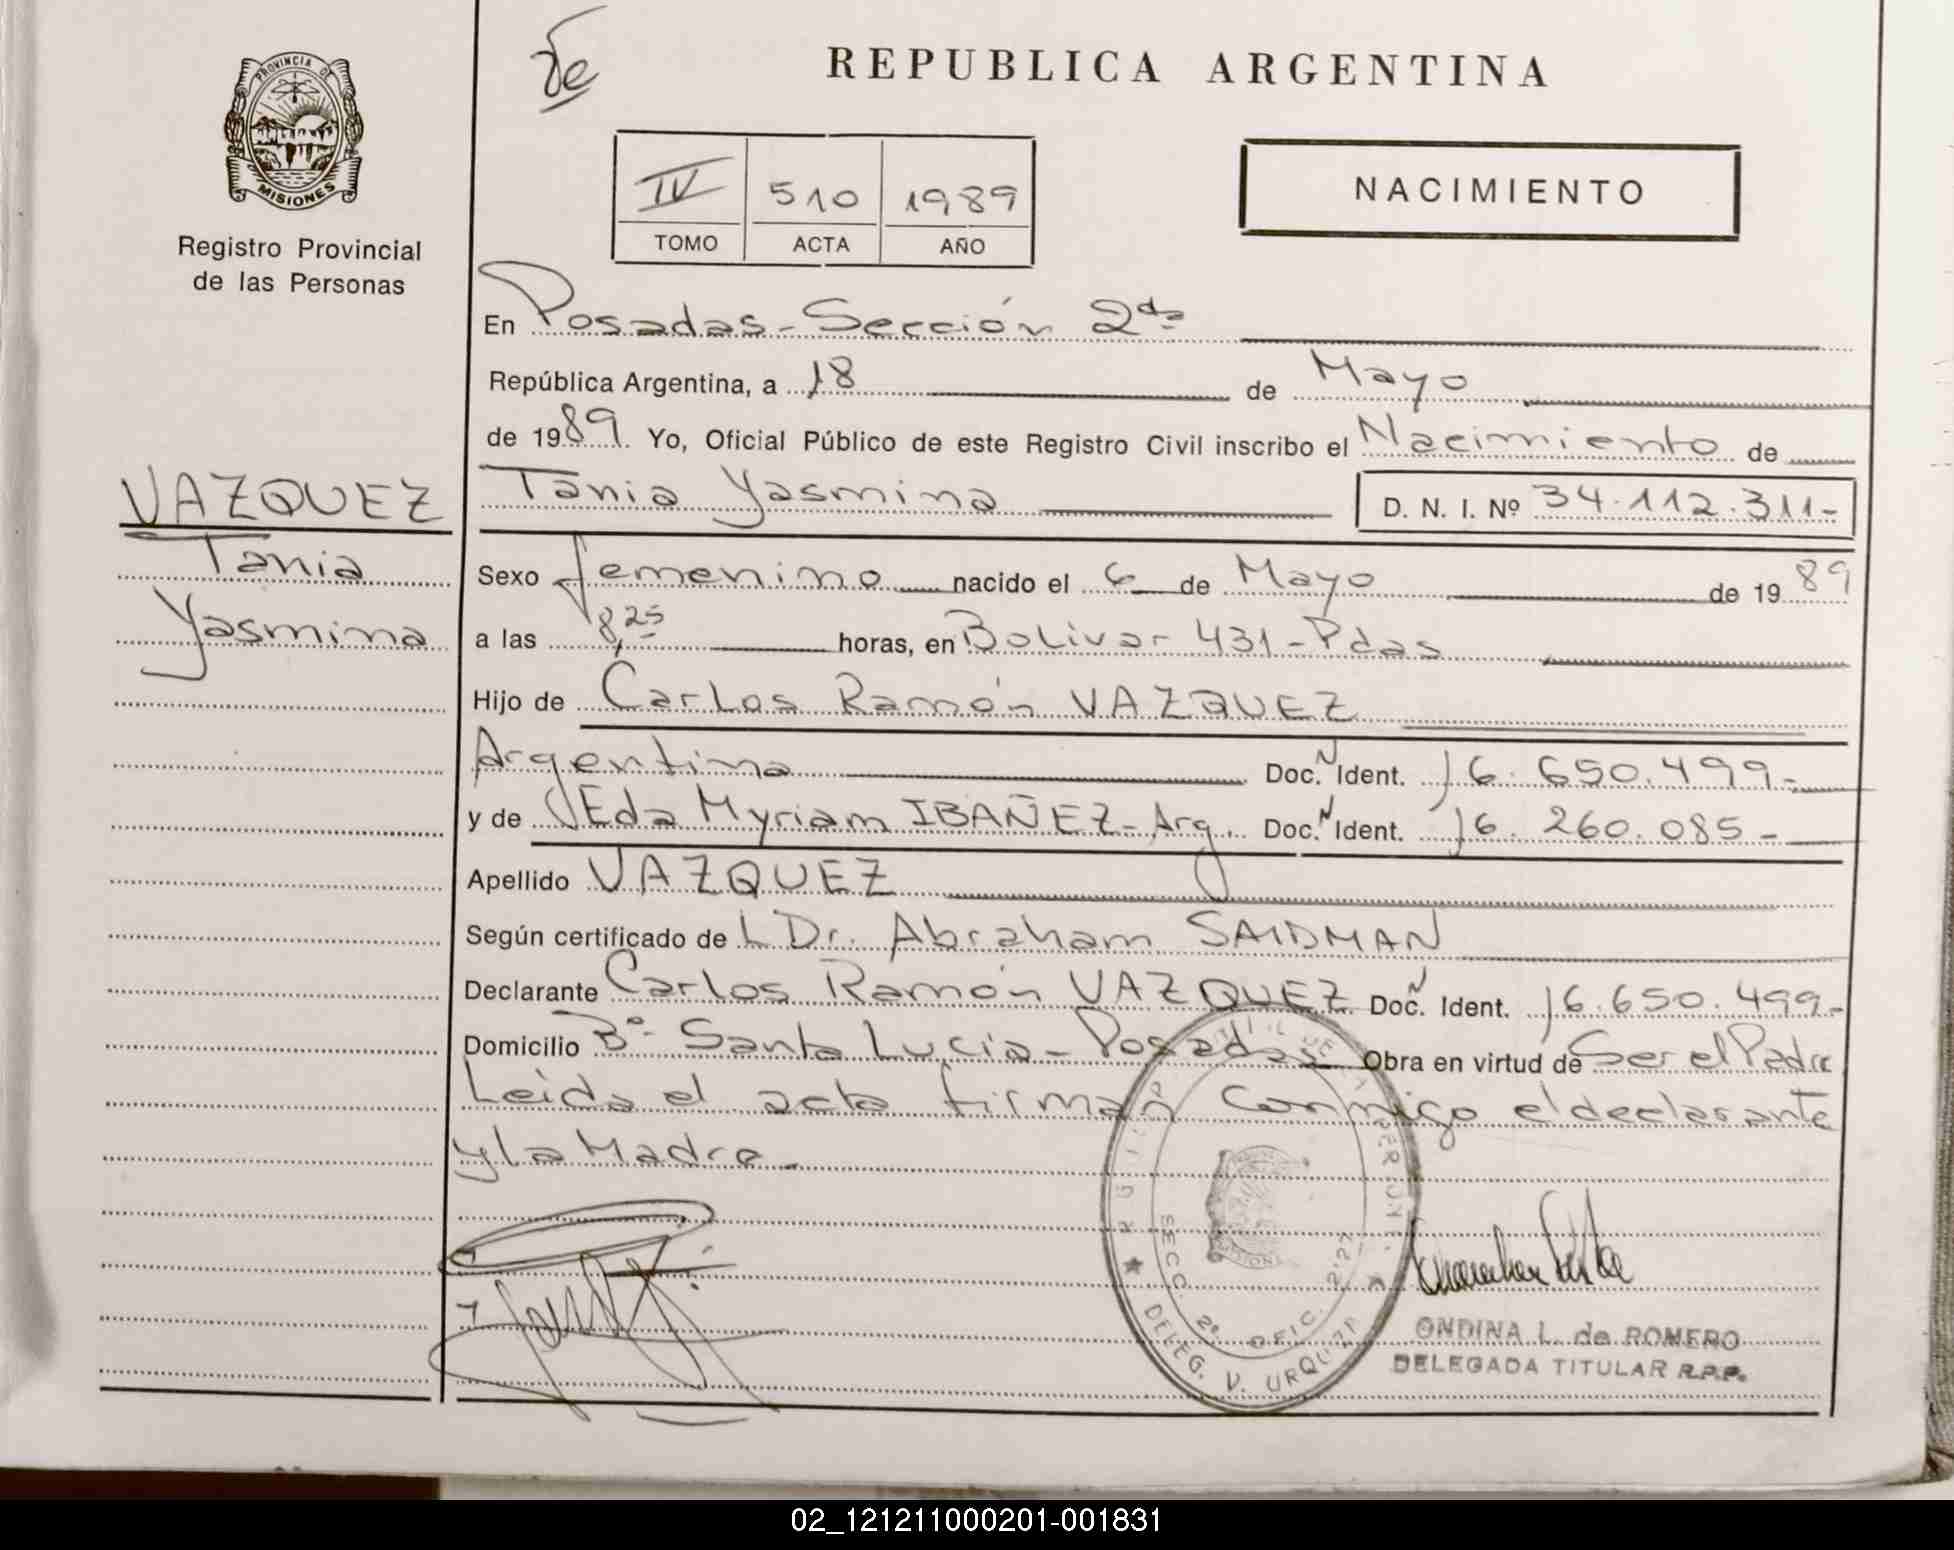 PROVINCIA DE
MISIONES
Registro Provincial
de las Personas
VAZQUEZ
Tania
Yasmina
REPUBLICA ARGENTINA
IV 510 1989
TOMO ACTA AÑO
NACIMIENTO
En Posadas - Sección 2da
República Argentina, a 18 de Mayo
de 1989. Yo, Oficial Público de este Registro Civil inscribo el Nacimiento de
Tania Yasmina D. N. I. Nº 34.112.311-
Sexo femenino nacido el 6 de Mayo de 1989
a las 8,25 horas, en Bolivar 431 - Pdas
Hijo de Carlos Ramón VAZQUEZ
Argentina Doc. N Ident. 16.650.499-
y de Eda Myriam IBAÑEZ - Arg. Doc. N Ident. 16.260.085-
Apellido VAZQUEZ
Según certificado de L Dr. Abraham SAIDMAN
Declarante Carlos Ramón VAZQUEZ Doc. N Ident. 16.650.499-
Domicilio Bº Santa Lucía - Posadas Obra en virtud de Ser el Padre
Leida el acta firman conmigo el declarante
y la Madre.
SECC. 2ª OFIC. 2127
DELEG. V. URQUIZA
ONDINA L. de ROMERO
DELEGADA TITULAR R.P.P.
02_121211000201-001831